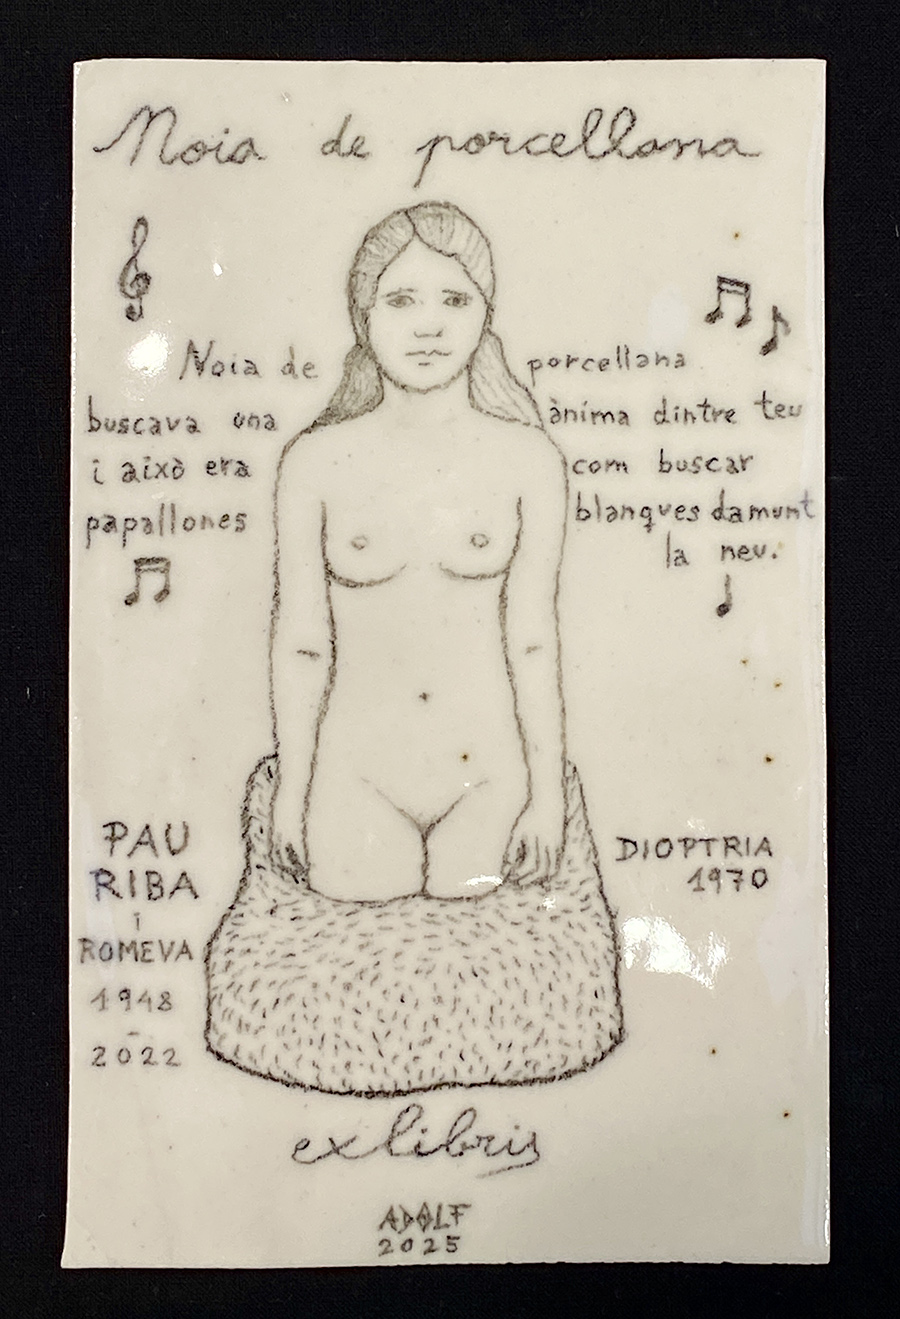 Noia de porcellana
Noia de porcellana
buscava una ànima dintre teu
i això era com buscar
papallones blanques damunt
la neu.
PAU
RIBA
i
ROMEVA
1948
-
2022
DIOPTRIA
1970
exlibris
ADOLF
2025